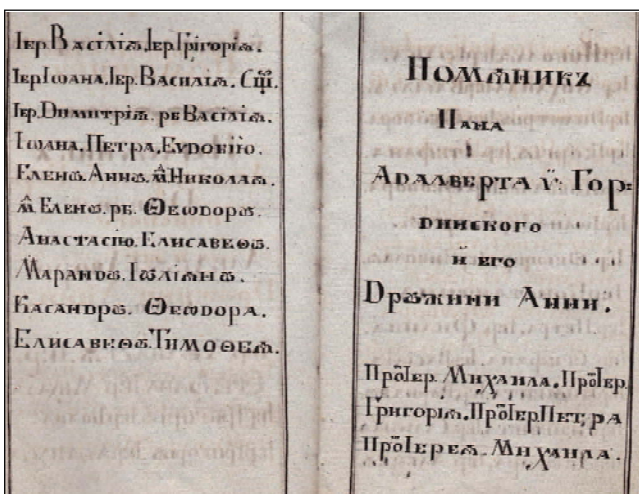 Іер Васілїѧ, Іер Григорїѧ.
Іер Іѡана, Іер. Василїѧ. Сщ҃.
Іер. Димитрїѧ. рб Васілїѧ.
Іѡана, Петра, Еѵдокїю.
Еленꙋ. Аннꙋ. м҃л Николаѧ.
м҃л Еленꙋ. рб. Ѳеѡдорꙋ.
Анастасїю. Елисавеѳꙋ.
Марандꙋ. Іꙋлїѧнꙋ.
Касандрꙋ. Ѳеѡдора.
Елисавеѳꙋ. Тимоѳеѧ.
Помѧникъ
Пана
Адалберта ї Гор=
динского
и его
Дрꙋжини Анни.
Про̑Іер. Михаила. Про̑Іер.
Григорїѧ. Про̑Іер Петра
Про̑Іереѧ. Михаила.